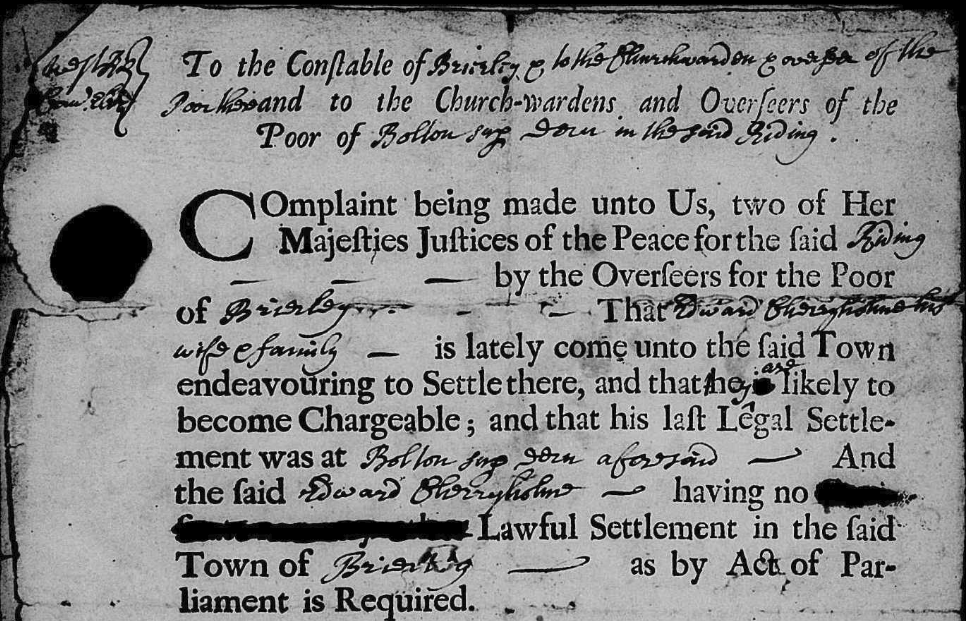 West Rid
To the Conſtable of Brierley & to the Churchwarden & overſeer of the
Poor there and to the Church-wardens and Overſeers of the
Poor of Bolton sup Dern in the said Riding.
COmplaint being made unto Us, two of Her
Majeſties Juſtices of the Peace for the ſaid Riding
by the Overſeers for the Poor
of Brierley That Edward Cherryholme his
wife & family is lately come unto the ſaid Town
endeavouring to Settle there, and that they are likely to
become Chargeable; and that his laſt Legal Settle-
ment was at Bolton sup Dern aforesaid And
the ſaid Edward Cherryholme having no
Lawful Settlement in the ſaid
Town of Brierley as by Act of Par-
liament is Required.